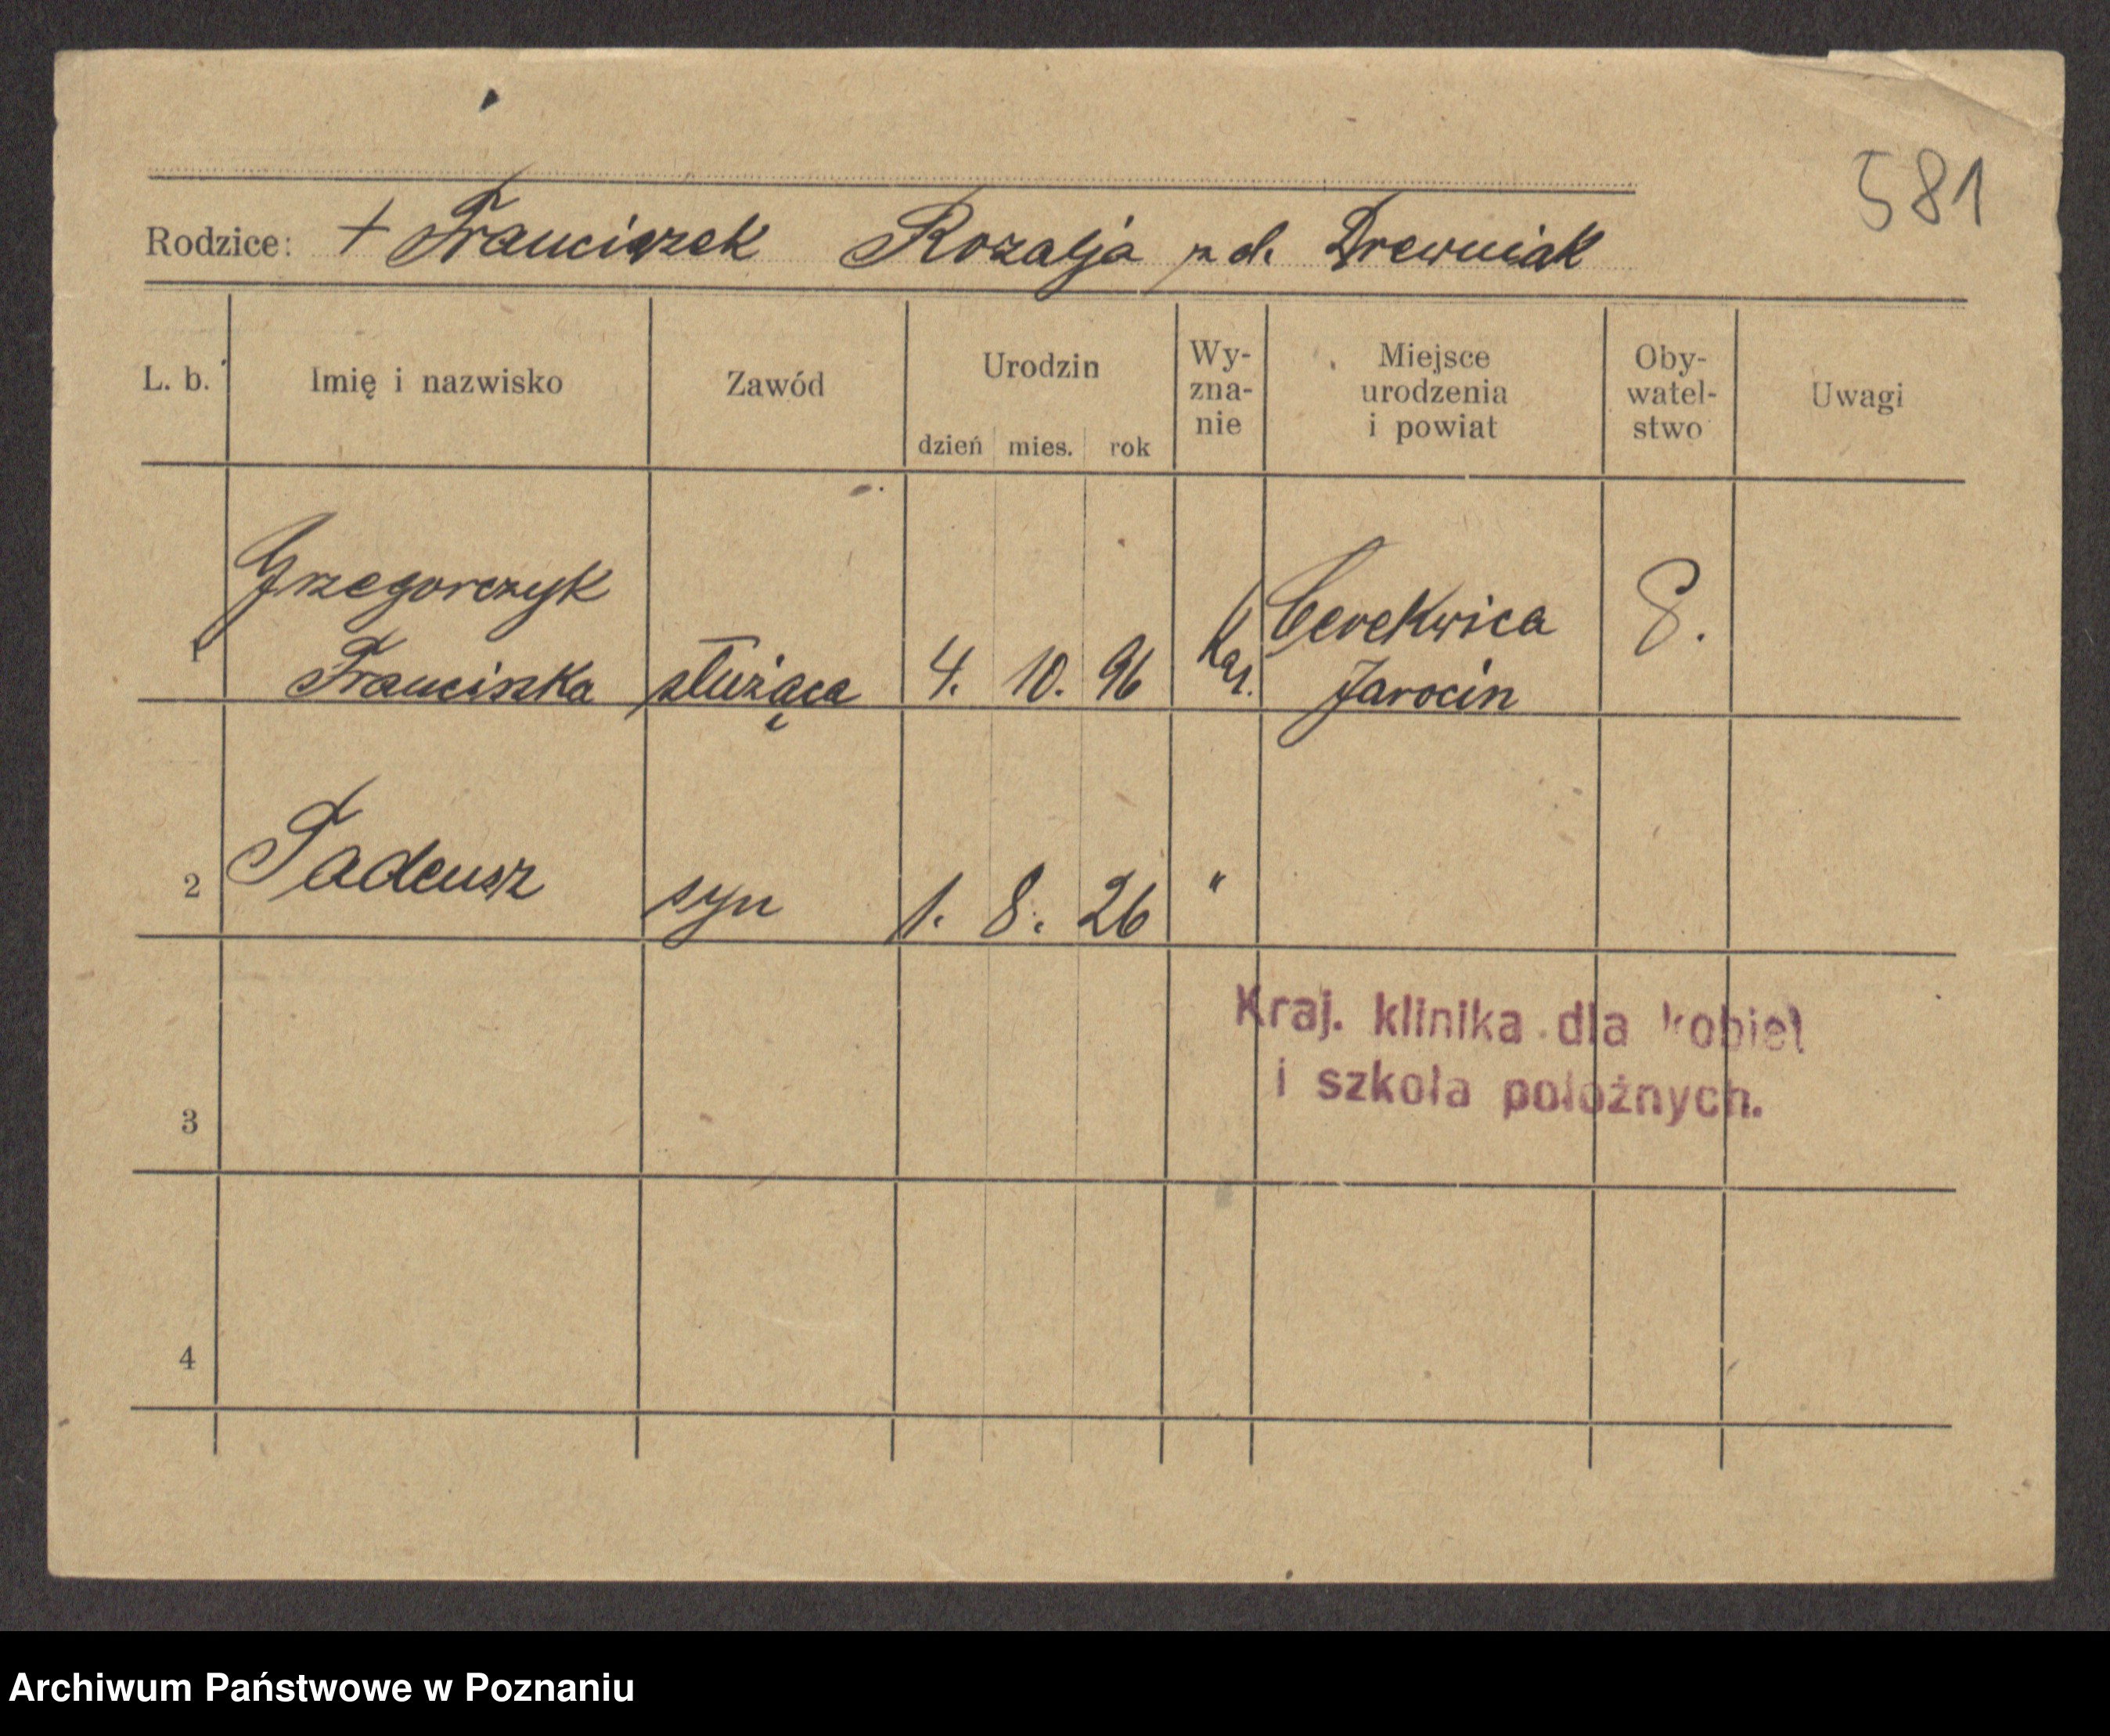 581
Rodzice: + Franciszek Rozalja z d. Drewniak
L. b. Imię i nazwisko Zawód Urodzin dzień mies. rok Wy-zna-nie Miejsce urodzenia i powiat Oby-watel-stwo Uwagi
Grzegorczyk Cerekwica
1 Franciszka służąca 4. 10. 96 Kat. Jarocin
2 Tadeusz syn 1. 8. 26 "
Kraj. klinika dla kobiet
i szkoła położnych.
3
4
Archiwum Państwowe w Poznaniu